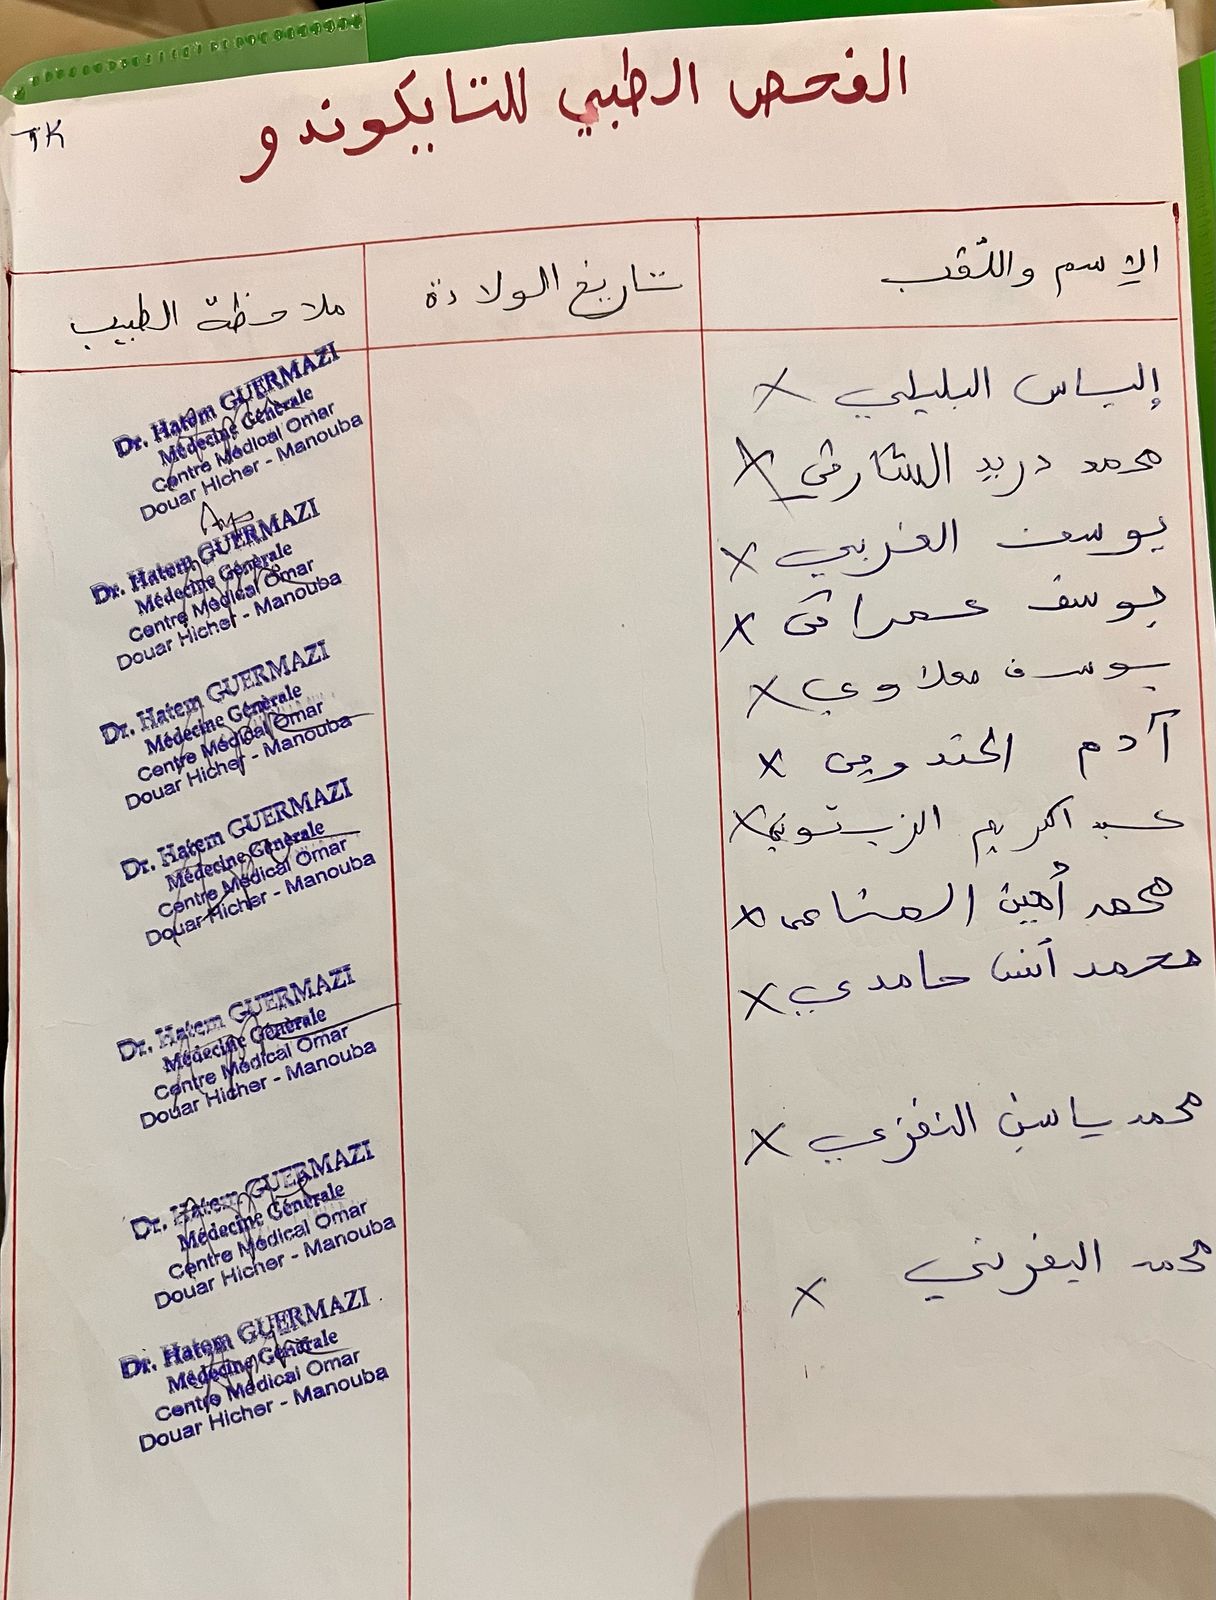 TK
الفحص الطبي للتايكوندو
الإسم واللّقب
تاريخ الولادة
ملاحظة الطبيب
إلياس البليلي X
محمد دريد الشارني X
يوسف الغربي X
يوسف عمراني X
يوسف معلاوي X
آدم X
عبد الكريم الزيتوني X
محمد أمين المناعي X
محمد أنس حامدي X
محمد ياسين النفزي X
محمد اليفرني X
Dr. Hatem GUERMAZI
Médecine Générale
Centre Médical Omar
Douar Hicher - Manouba
Dr. Hatem GUERMAZI
Médecine Générale
Centre Médical Omar
Douar Hicher - Manouba
Dr. Hatem GUERMAZI
Médecine Générale
Centre Médical Omar
Douar Hicher - Manouba
Dr. Hatem GUERMAZI
Médecine Générale
Centre Médical Omar
Douar Hicher - Manouba
Dr. Hatem GUERMAZI
Médecine Générale
Centre Médical Omar
Douar Hicher - Manouba
Dr. Hatem GUERMAZI
Médecine Générale
Centre Médical Omar
Douar Hicher - Manouba
Dr. Hatem GUERMAZI
Médecine Générale
Centre Médical Omar
Douar Hicher - Manouba